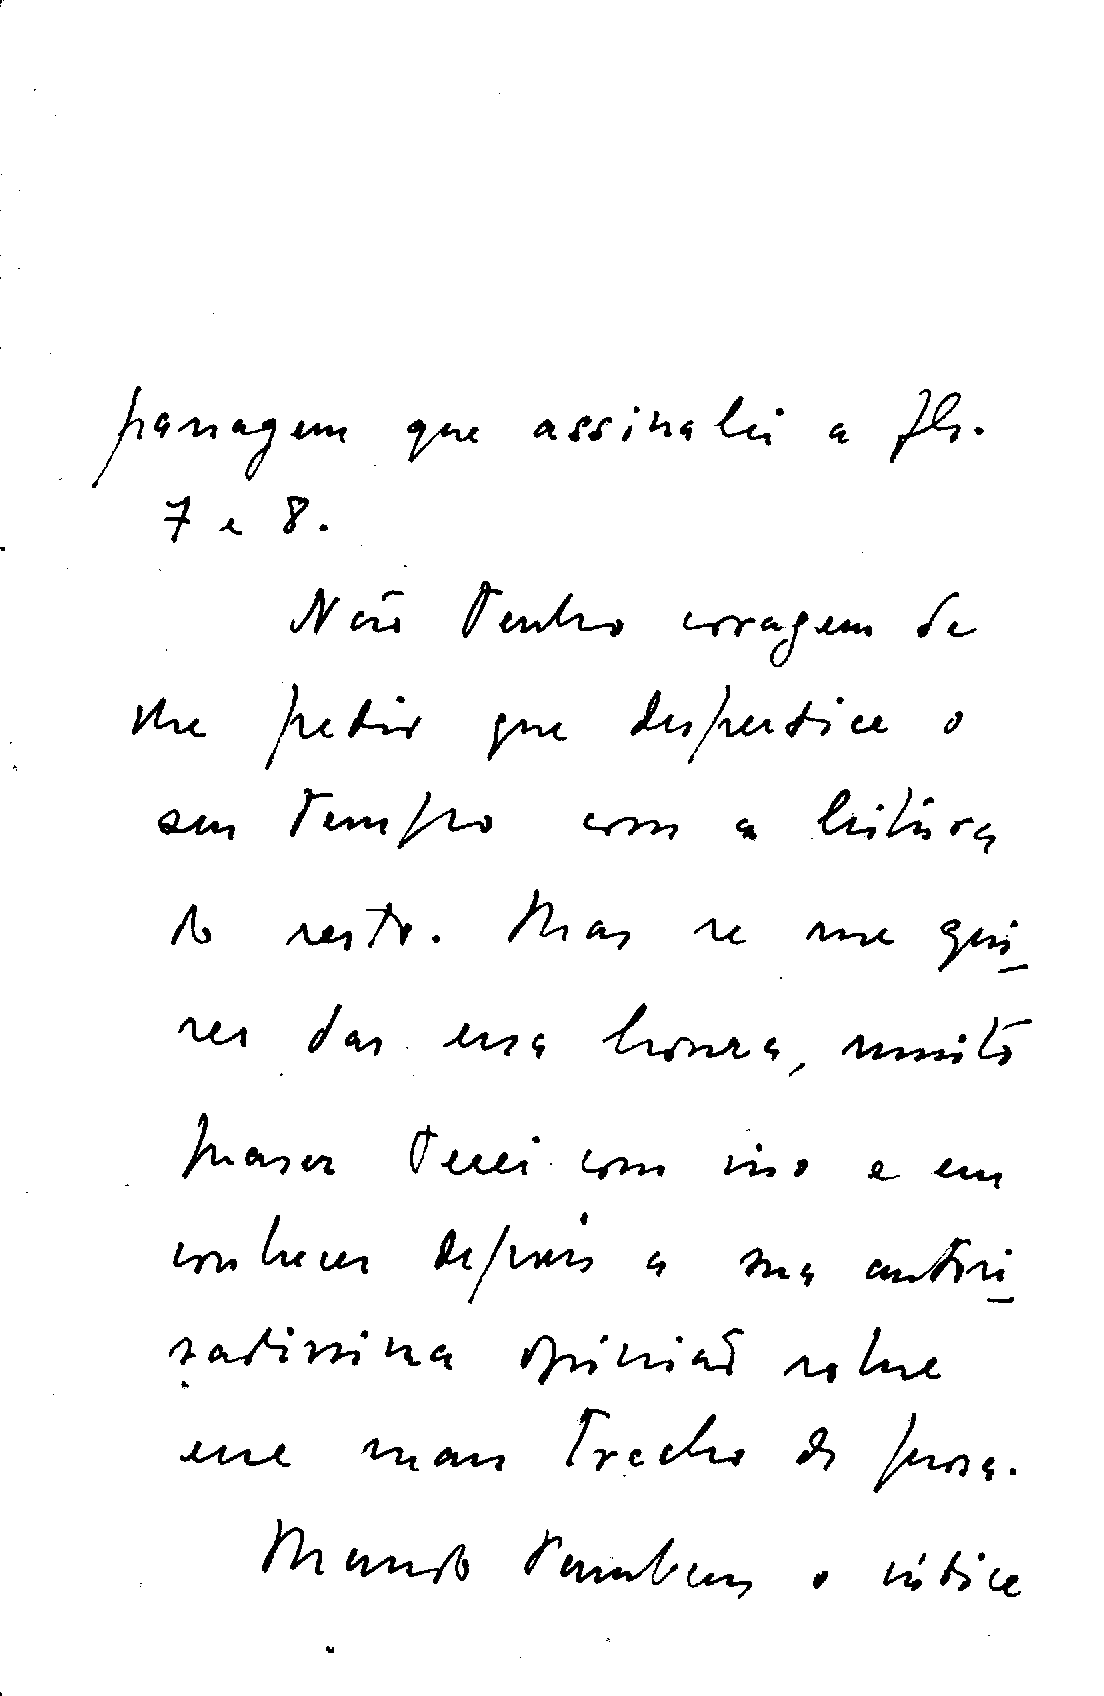 passagem que assinalei a fls.
7 e 8.
Não tenho coragem de
lhe pedir que desperdice o
seu tempo com a leitura
do resto. Mas se me qui-
ser dar essa honra, muito
praser terei com isso e em
conhecer depois a sua autori-
sadissima opinião sobre
esse mau trecho de prosa.
Mando tambem o indice